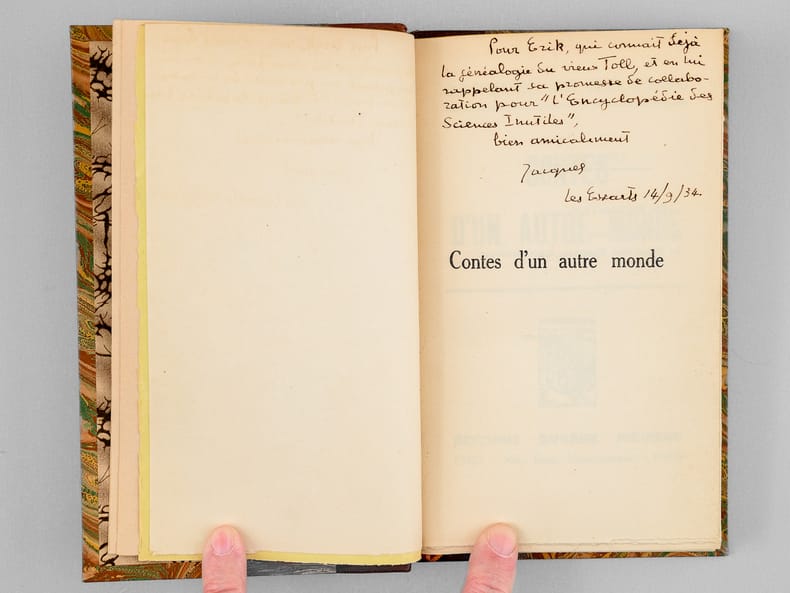 Pour Erik, qui connait déjà
la généalogie du vieux Toll, et en lui
rappelant sa promesse de collabo-
ration pour "L'Encyclopédie des
Sciences Inutiles",
bien amicalement
Jacques
Les Essarts 14/9/34.
Contes d'un autre monde